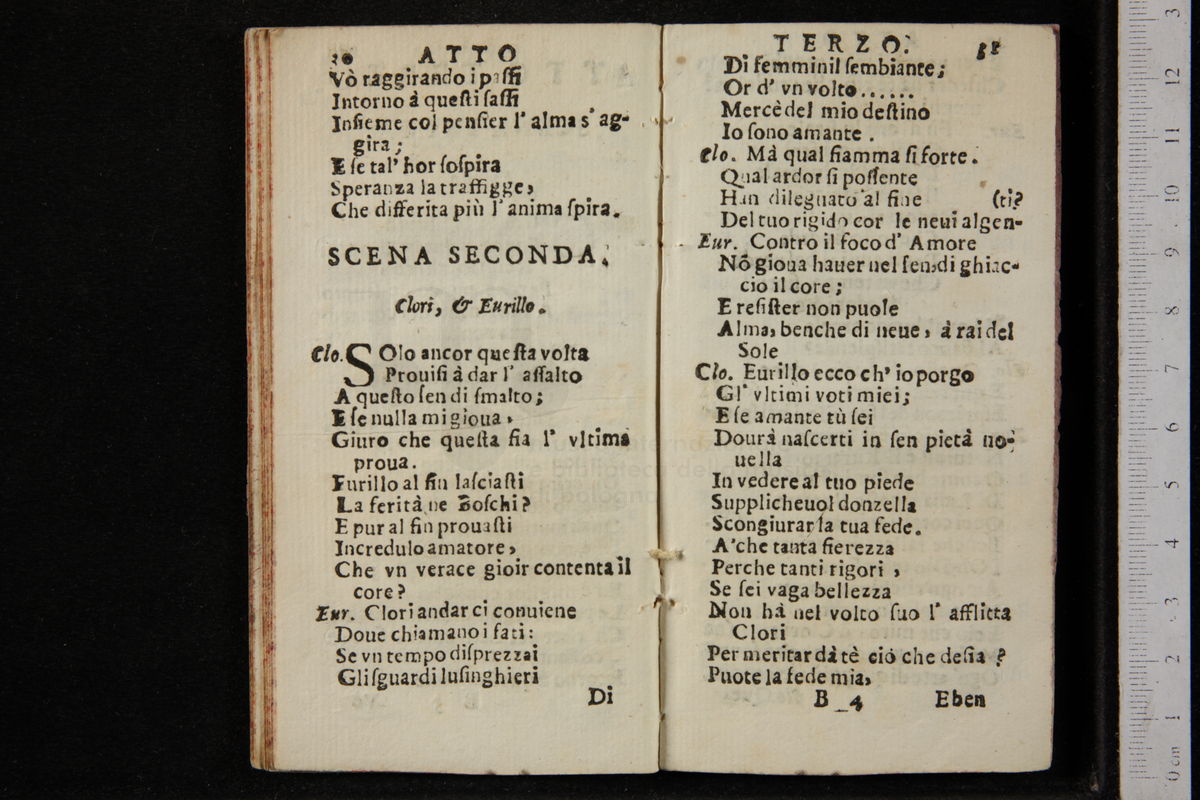 ATTO
Vò raggirando i passi
Intorno à questi sassi
Insieme col pensier l' alma s' ag-
gira;
E se tal' hor sospira
Speranza la traffigge,
Che differita più l' anima spira.
SCENA SECONDA.
Clori, & Eurillo.
Clo. SOlo ancor questa volta
Prouisi à dar l' assalto
A questo sen di smalto;
E se nulla mi gioua,
Giuro che questa sia l' vltima
proua.
Eurillo al fin lasciasti
La ferità ne Boschi?
E pur al fin prouasti
Incredulo amatore,
Che vn verace gioir contenta il
core?
Eur. Clori andar ci conuiene
Doue chiamano i fati:
Se vn tempo disprezzai
Gli sguardi lusinghieri
Di
TERZO.
Di femminil sembiante;
Or d' vn volto......
Mercè del mio destino
Io sono amante.
Clo. Mà qual fiamma si forte.
Qual ardor si possente
Han dileguato al fine (ti?
Del tuo rigido cor le neui algen-
Eur. Contro il foco d' Amore
Nõ gioua hauer nel sen, di ghiac-
cio il core;
E resister non puole
Alma, benche di neue, à rai del
Sole
Clo. Eurillo ecco ch' io porgo
Gl' vltimi voti miei;
E se amante tù sei
Dourà nascerti in sen pietà no-
uella
In vedere al tuo piede
Supplicheuol donzella
Scongiurar la tua fede.
A' che tanta fierezza
Perche tanti rigori,
Se sei vaga bellezza
Non hà nel volto suo l' afflitta
Clori
Per meritar dà tè ciò che desia?
Puote la fede mia,
B 4 Eben